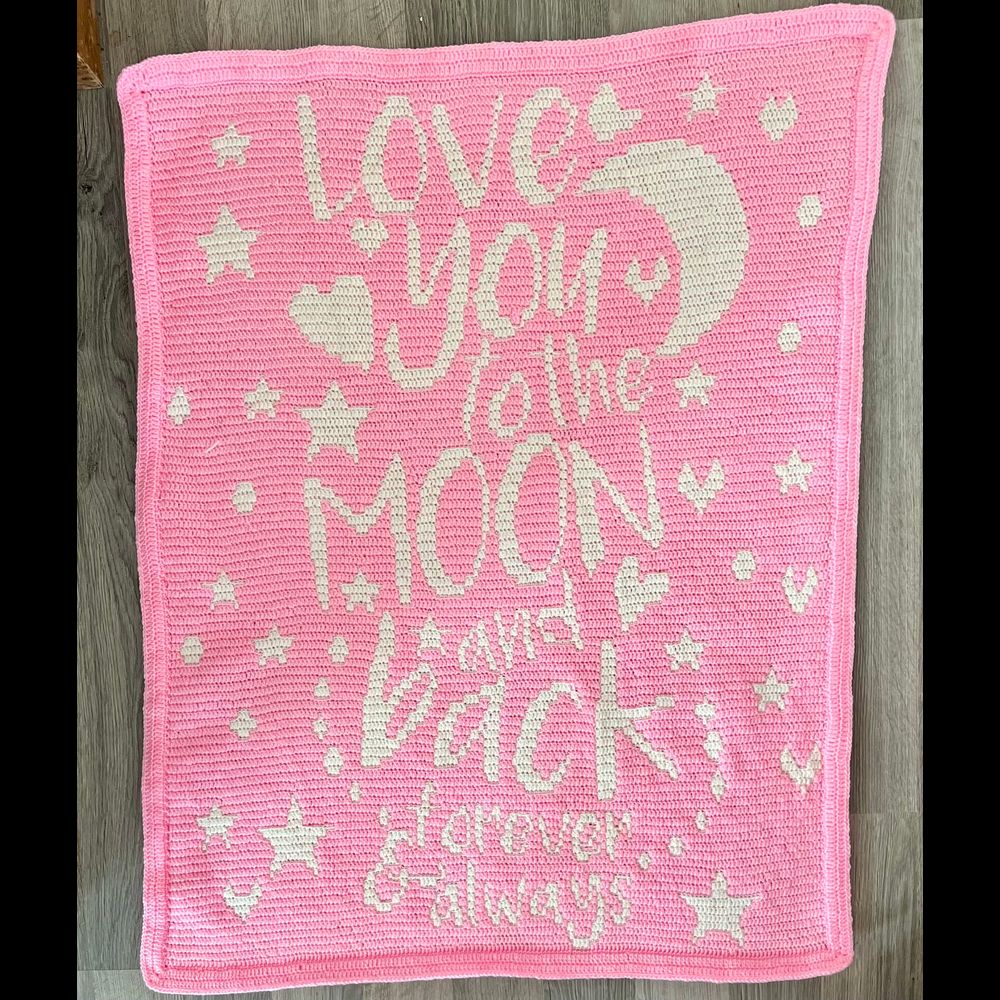 Love
you
to the
MOON
and
back
forever
& always